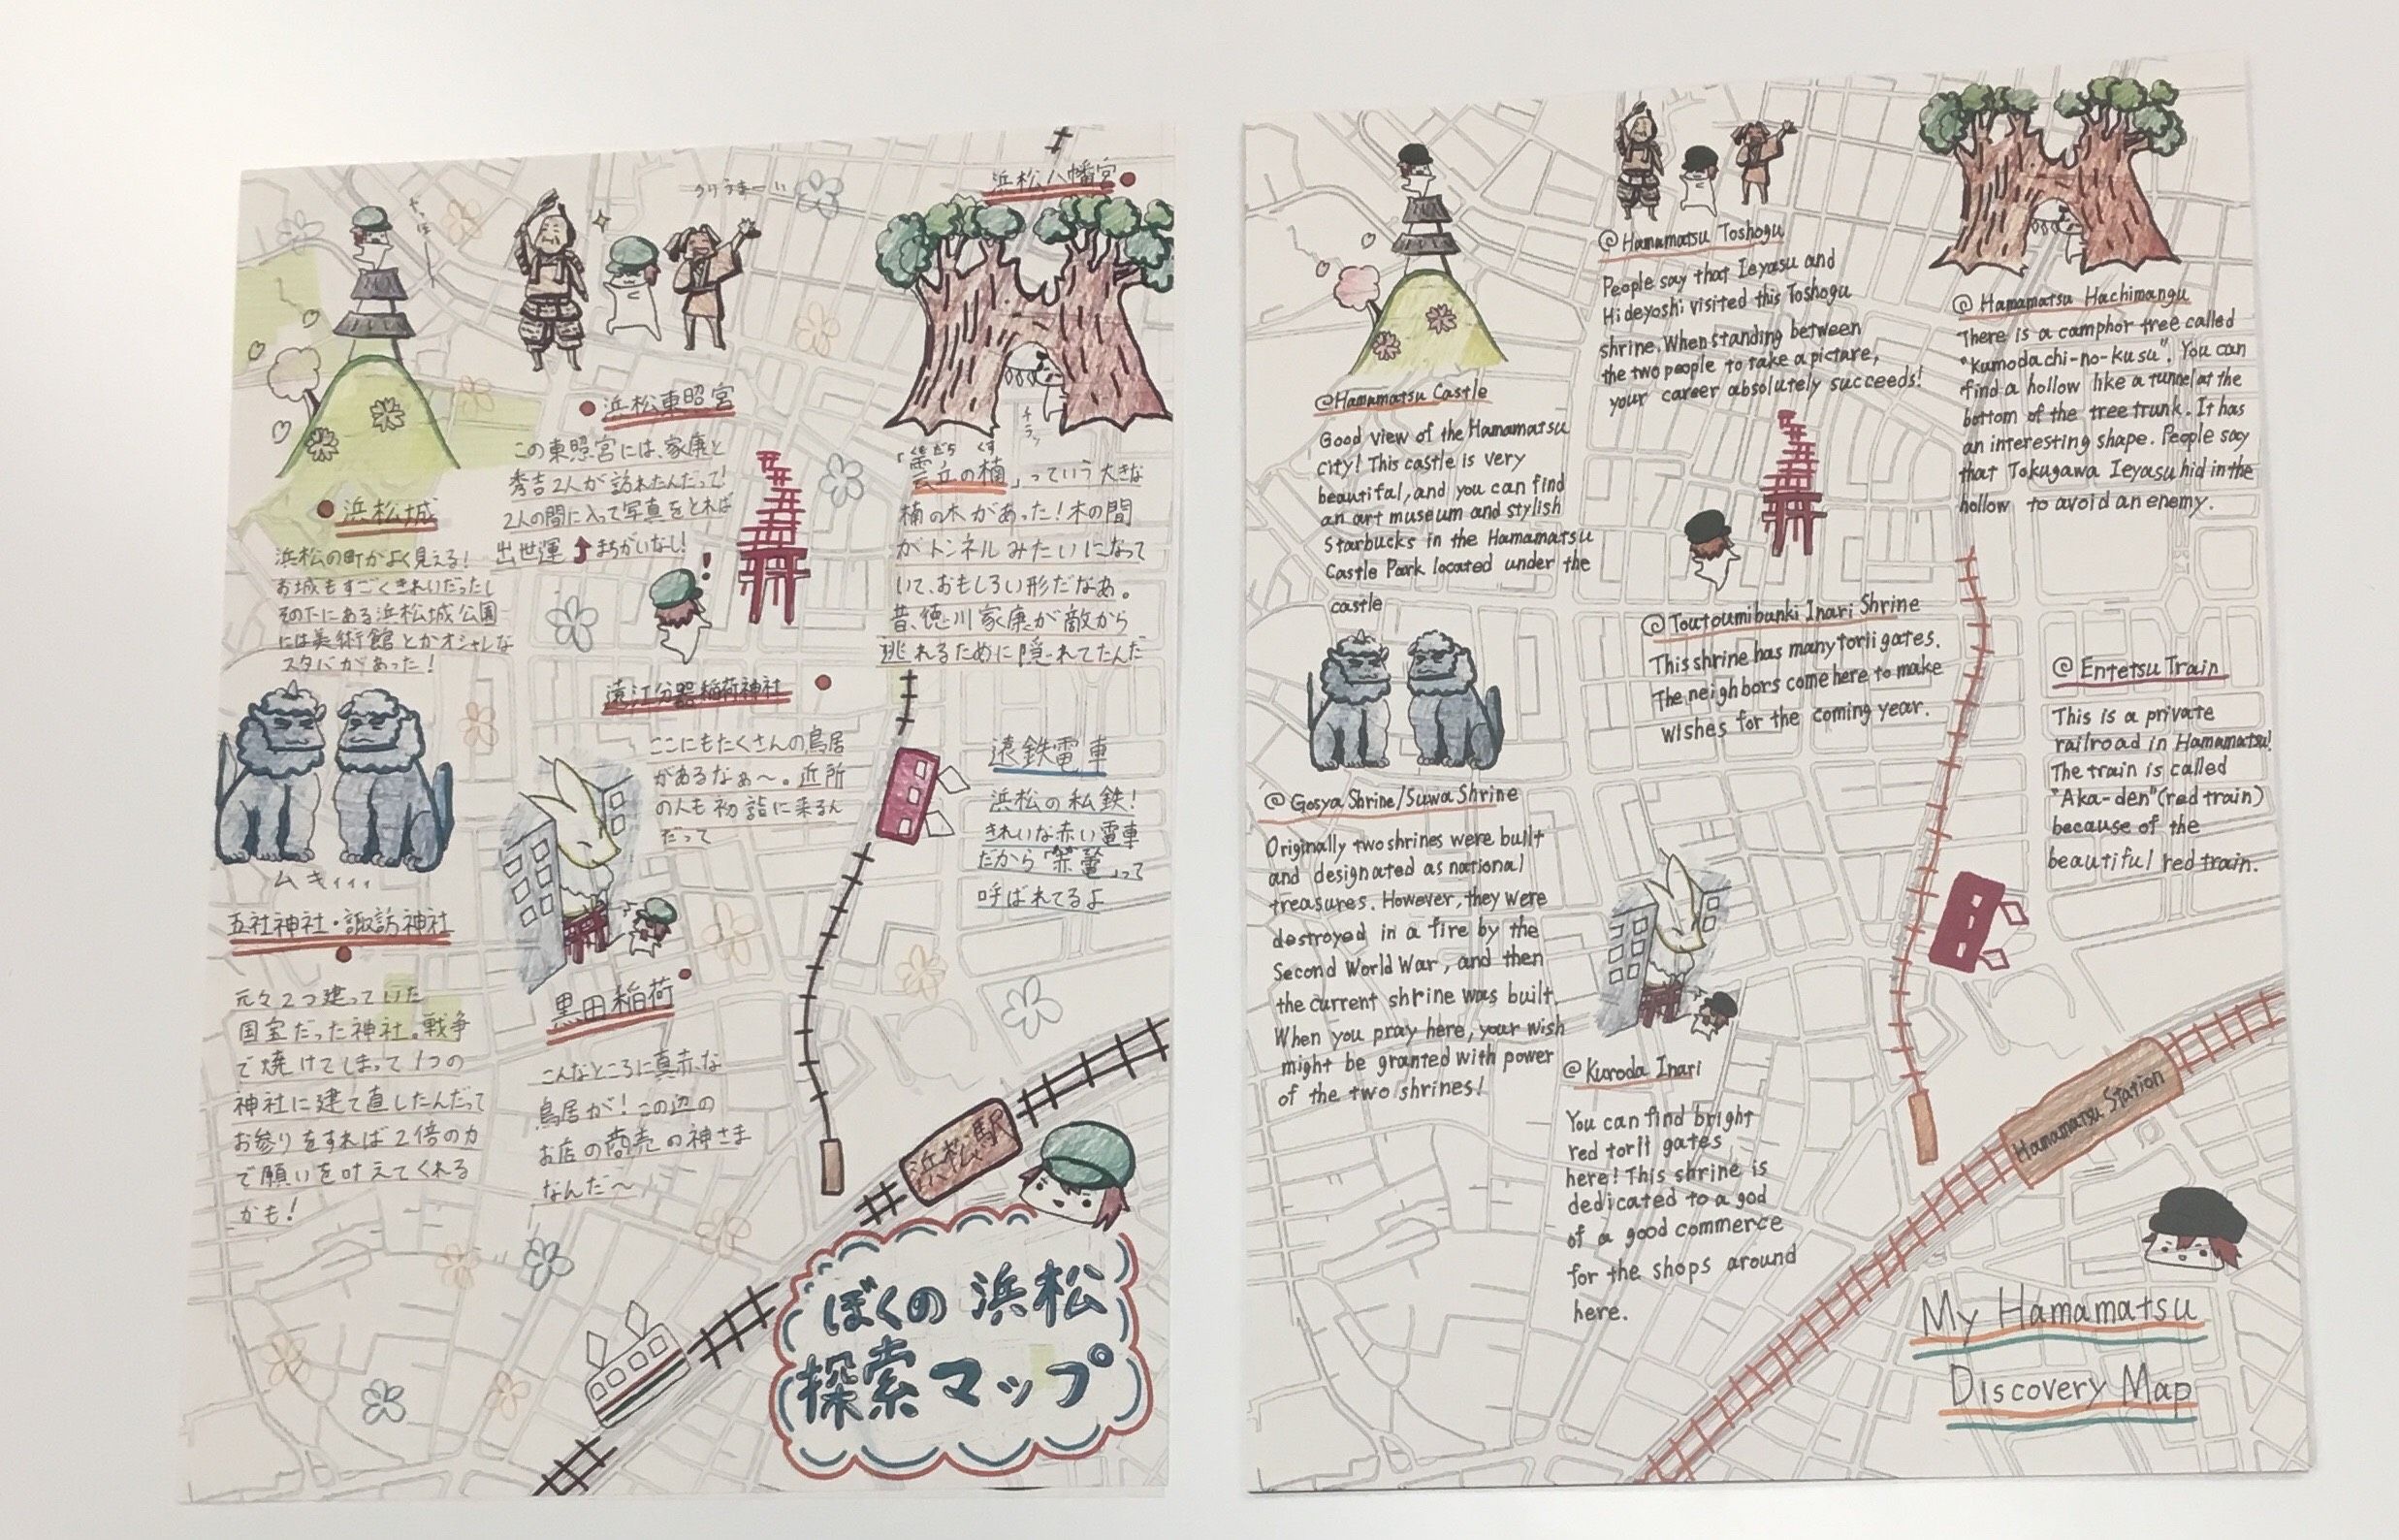 浜松八幡宮
「雲立の楠」っていう大きな
くもだち くす
楠の木があった！木の間
がトンネルみたいになって
いて、おもしろい形だなぁ。
昔、徳川家康が敵から
逃れるために隠れてたんだ
チラッ
浜松東照宮
この東照宮には、家康と
秀吉2人が訪れたんだって！
2人の間に入って写真をとれば
出世運 まちがいなし！
浜松城
浜松の町がよく見える！
お城もすごくきれいだったし
その下にある浜松城公園
には美術館とかオシャレな
スタバがあった！
遠江分器稲荷神社
ここにもたくさんの鳥居
があるなぁ〜。近所
の人も初詣に来るん
だって
遠鉄電車
浜松の私鉄！
きれいな赤い電車
だから
って
呼ばれてるよ
ムキィィィ
五社神社・諏訪神社
元々2つ建っていた
国宝だった神社。戦争
で焼けてしまって1つの
神社に建て直したんだって
お参りをすれば2倍の力
で願いを叶えてくれる
かも！
黒田稲荷
こんなところに真赤な
鳥居が！この辺の
お店の商売の神さま
なんだ〜
浜松駅
ぼくの浜松
探索マップ
@Hamamatsu Castle
Good view of the Hamamatsu
city! This castle is very
beautiful, and you can find
an art museum and stylish
Starbucks in the Hamamatsu
Castle Park located under the
castle
@Hamamatsu Toshogu
People say that Ieyasu and
Hideyoshi visited this Toshogu
shrine. When standing between
the two people to take a picture,
your career absolutely succeeds!
@ Hamamatsu Hachimangu
There is a camphor tree called
"Kumodachi-no-kusu". You can
find a hollow like a tunnel at the
bottom of the tree trunk. It has
an interesting shape. People say
that Tokugawa Ieyasu hid in the
hollow to avoid an enemy.
@Toutoumibunki Inari Shrine
This shrine has many torii gates.
The neighbors come here to make
wishes for the coming year.
@ Entetsu Train
This is a private
railroad in Hamamatsu!
The train is called
"Aka-den"(red train)
because of the
beautiful red train.
@ Gosya Shrine/Suwa Shrine
Originally two shrines were built
and designated as national
treasures. However, they were
destroyed in a fire by the
Second World War, and then
the current shrine was built.
When you pray here, your wish
might be granted with power
of the two shrines!
@Kuroda Inari
You can find bright
red torii gates
here! This shrine is
dedicated to a god
of a good commerce
for the shops around
here.
Hamamatsu Station
My Hamamatsu
Discovery Map